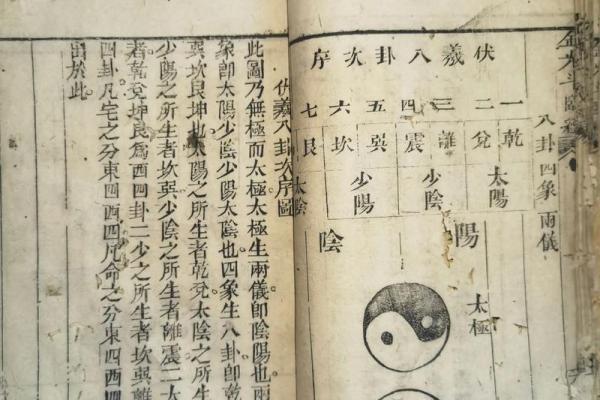 八卦四象兩儀
伏羲八卦次序
一乾
二兌
三離
四震
五巽
六坎
七艮
太陽
少陰
少陽
太陰
陽
陰
太極
伏羲八卦次序圖
此圖乃無極而太極。太極生兩儀。即陰陽也。兩
象即太陽少陰少陽太陰也。四象生八卦。即乾
巽坎艮坤也。太陽之所生者乾兌。太陰之所生
少陽之所生者坎巽。少陰之所生者離震。二太
者乾兌坤艮。爲西四卦。二少之所生者坎巽離
四卦。凡宅之分東四西四。凡命之分東四西四
出於此。